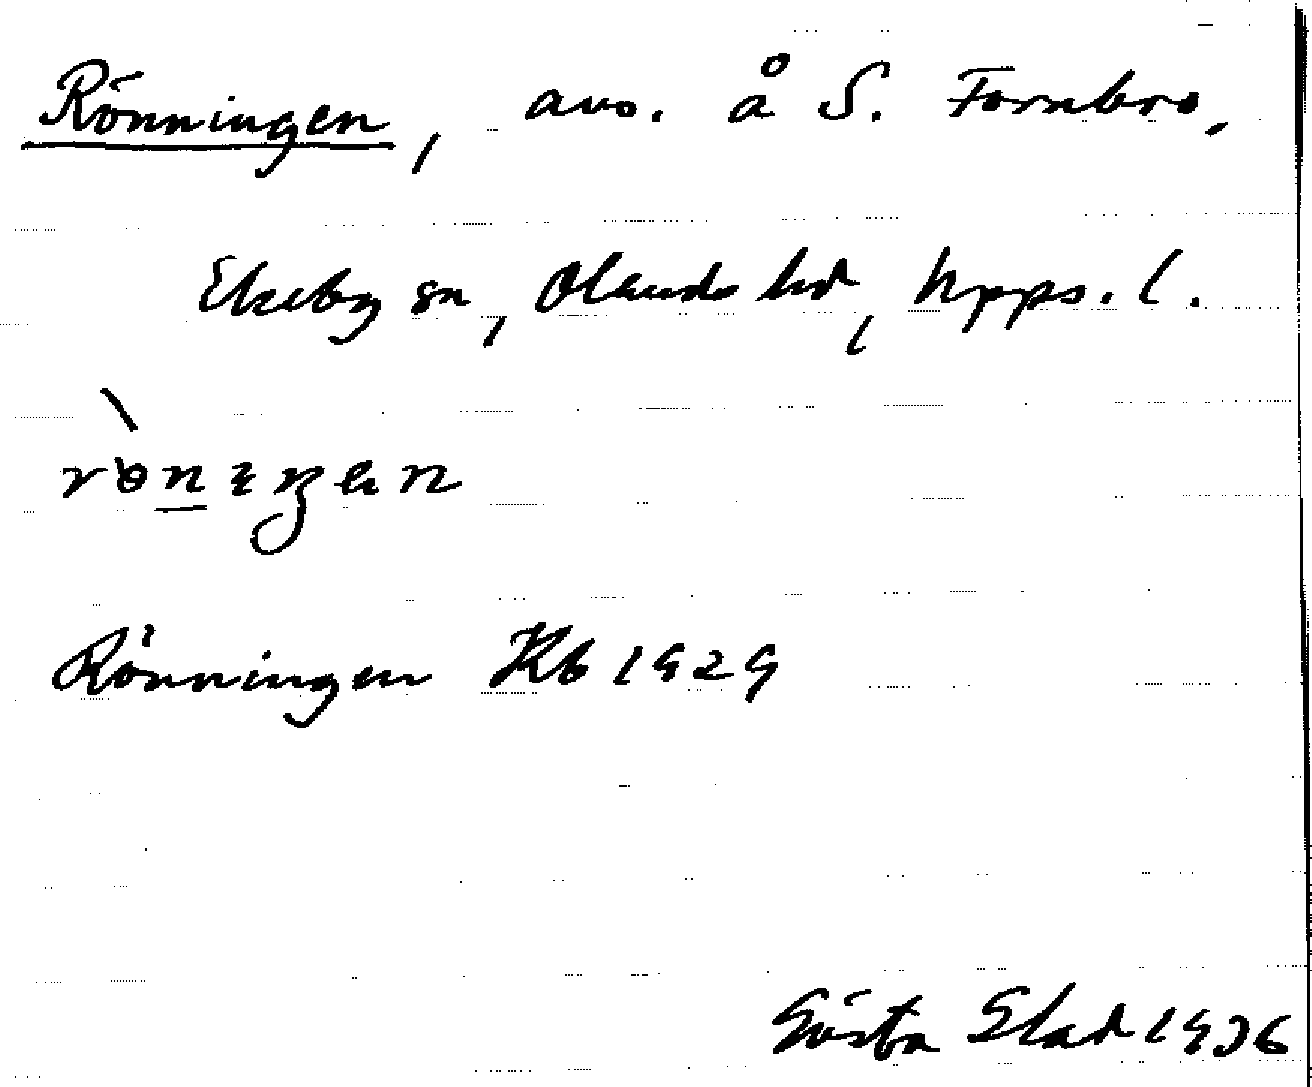 Rönningen, avs. å S. Fornbro,
Ekeby sn, Olands hd, Upps. l.
Rönningen Kb 1929
Gösta Stad 1936